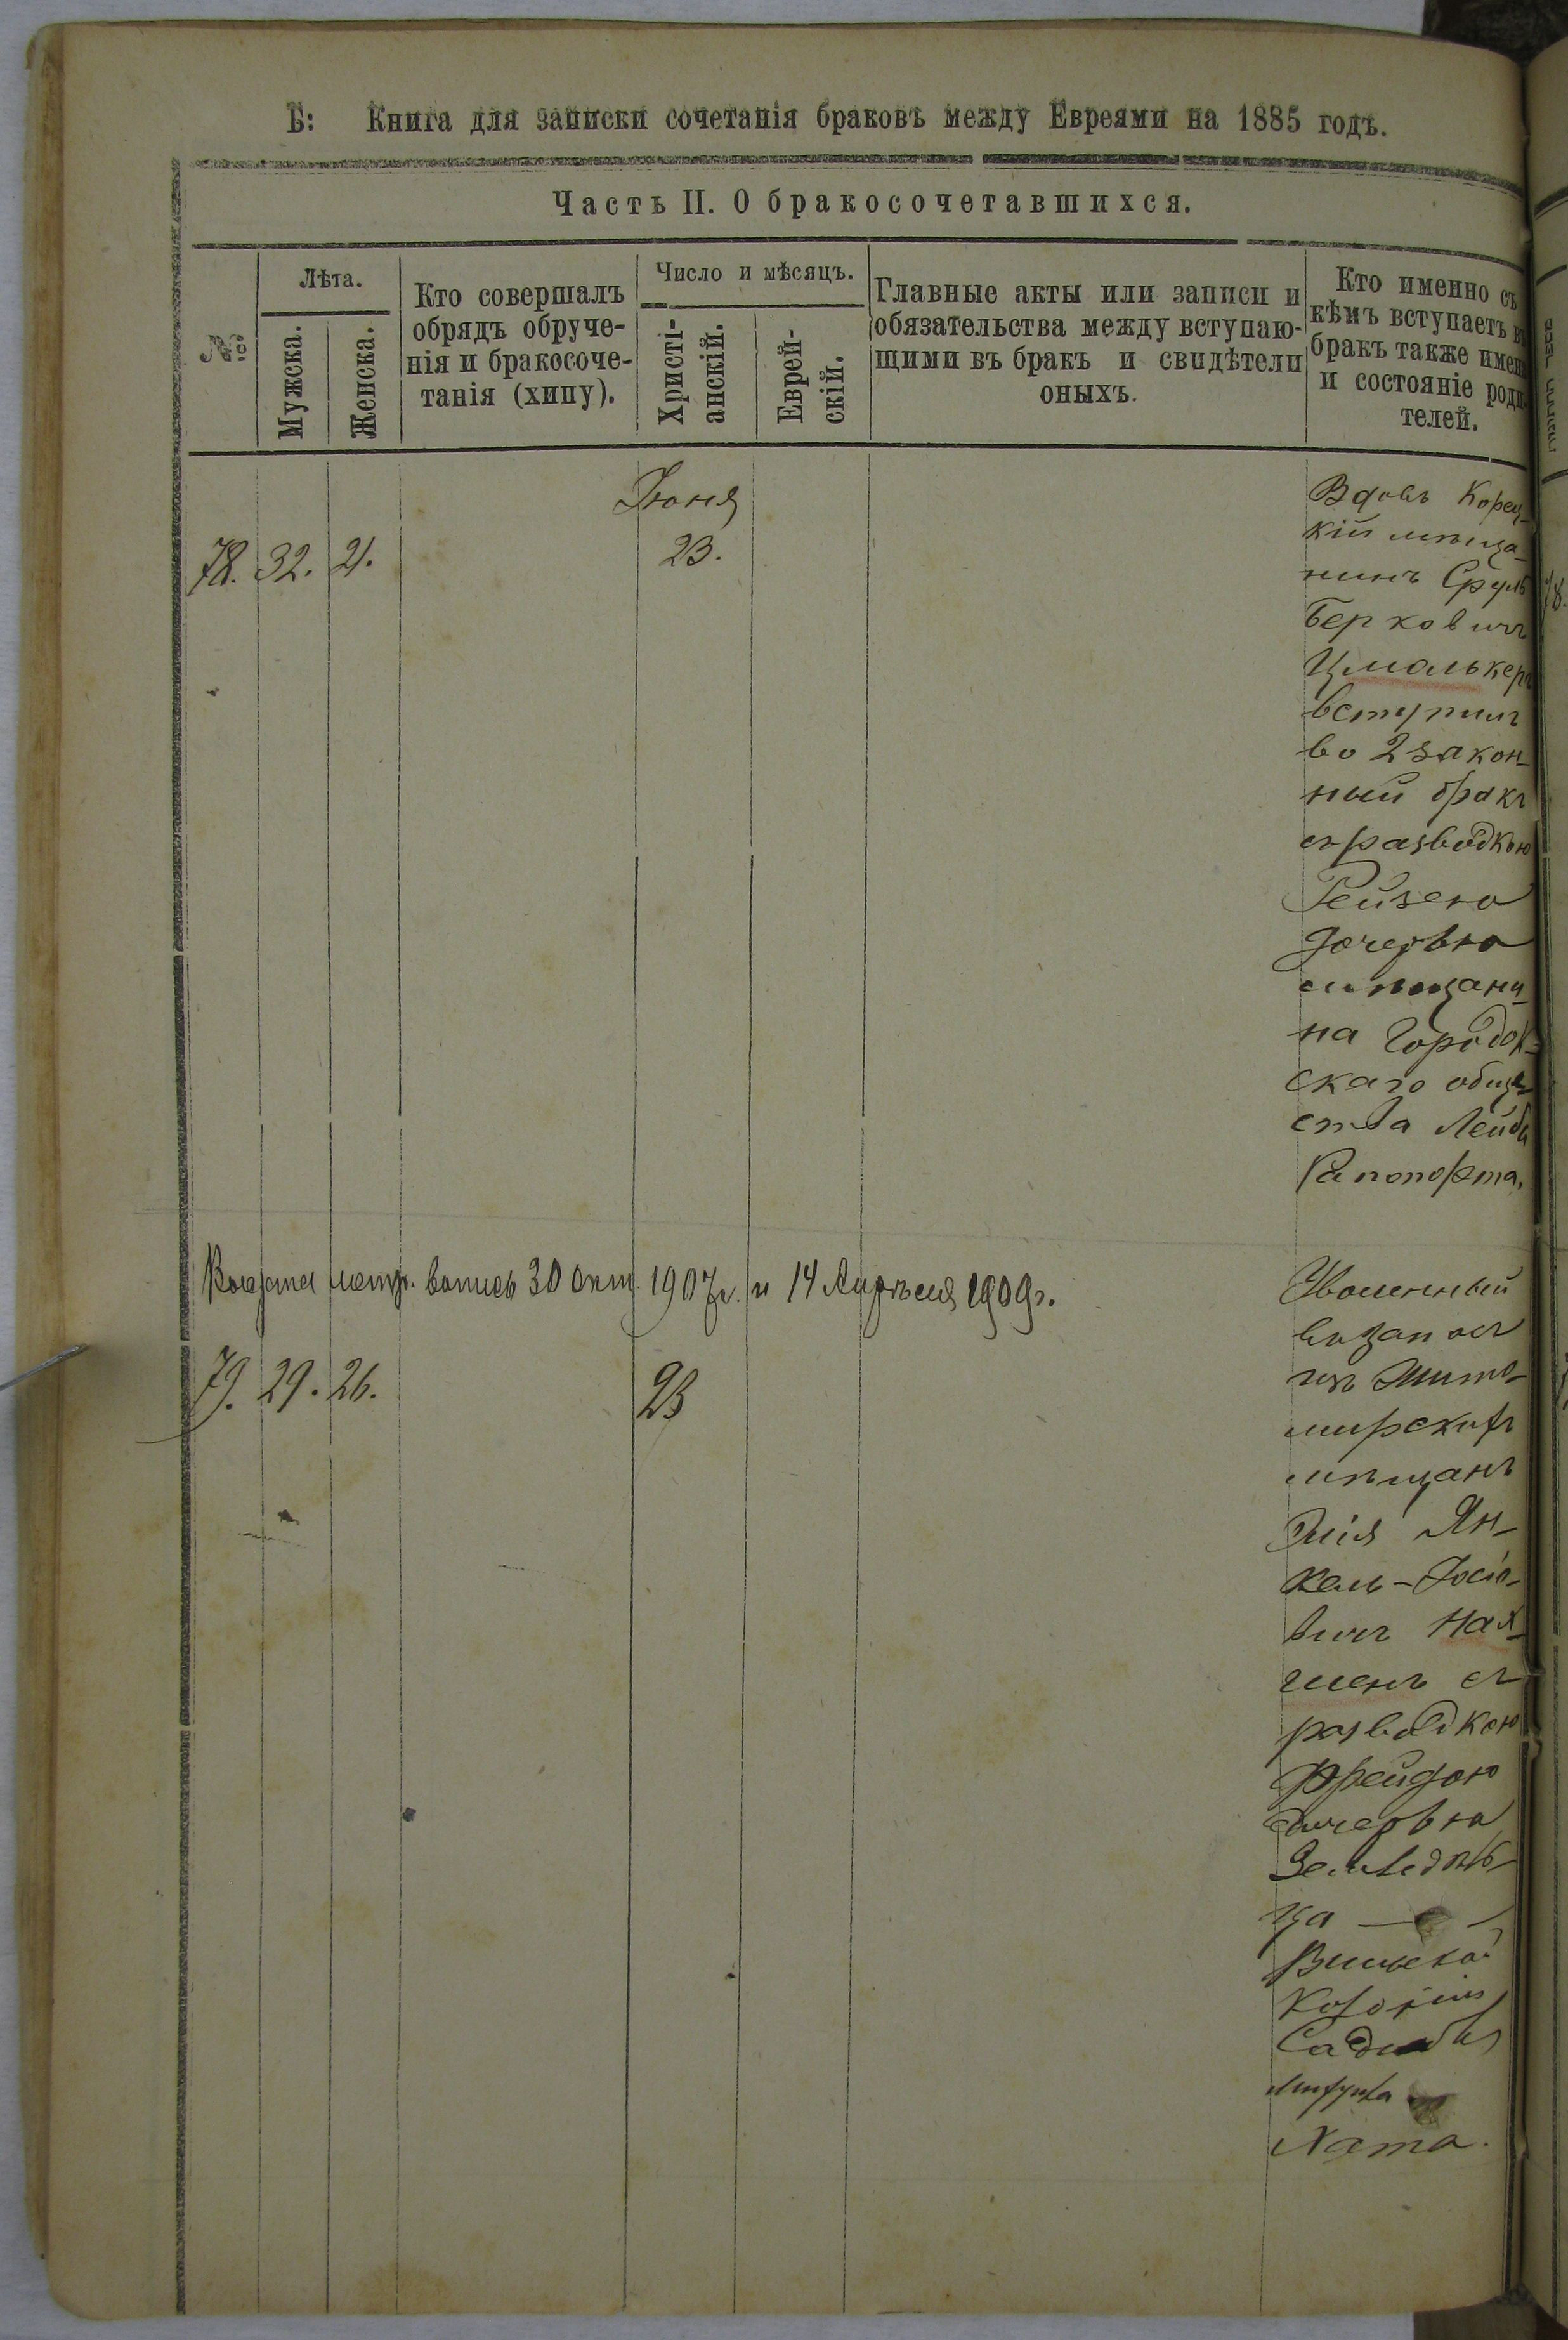 Б: Книга для записки сочетанія браковъ между Евреями на 1885 годъ.
Часть II. О бракосочетавшихся.
№
Лѣта.
Мужска.
Женска.
Кто совершалъ
обрядъ обруче-
нія и бракосоче-
танія (хипу).
Число и мѣсяцъ.
Христі-
анскій.
Еврей-
скій.
Главные акты или записи и
обязательства между вступаю-
щими въ бракъ и свидѣтели
оныхъ.
Кто именно съ
кѣмъ вступаетъ въ
бракъ также имена
и состояніе роди-
телей.
Іюня
78. 32. 21. 23.
Вдовъ Корец-
кій мѣща-
нинъ Сруль
Берковичъ
Цмалькеръ
вступилъ
во 2 закон-
ный бракъ
съ разводкою
Рейзею
дочерью
мѣщани-
на Городок-
скаго обще-
ства Лейбы
Рапопорта.
метр. выпись 30 окт. 1907 г. и 14 Апрѣля 1909 г.
79. 29. 26. 23
Уволенный
въ запасъ
изъ Жито-
мирскихъ
мѣщанъ
Элія Ян-
кель-Іосіо-
вичъ Нах-
манъ съ
разводкою
Фрейдою
дочерью
Земледѣль-
ца
колоніи